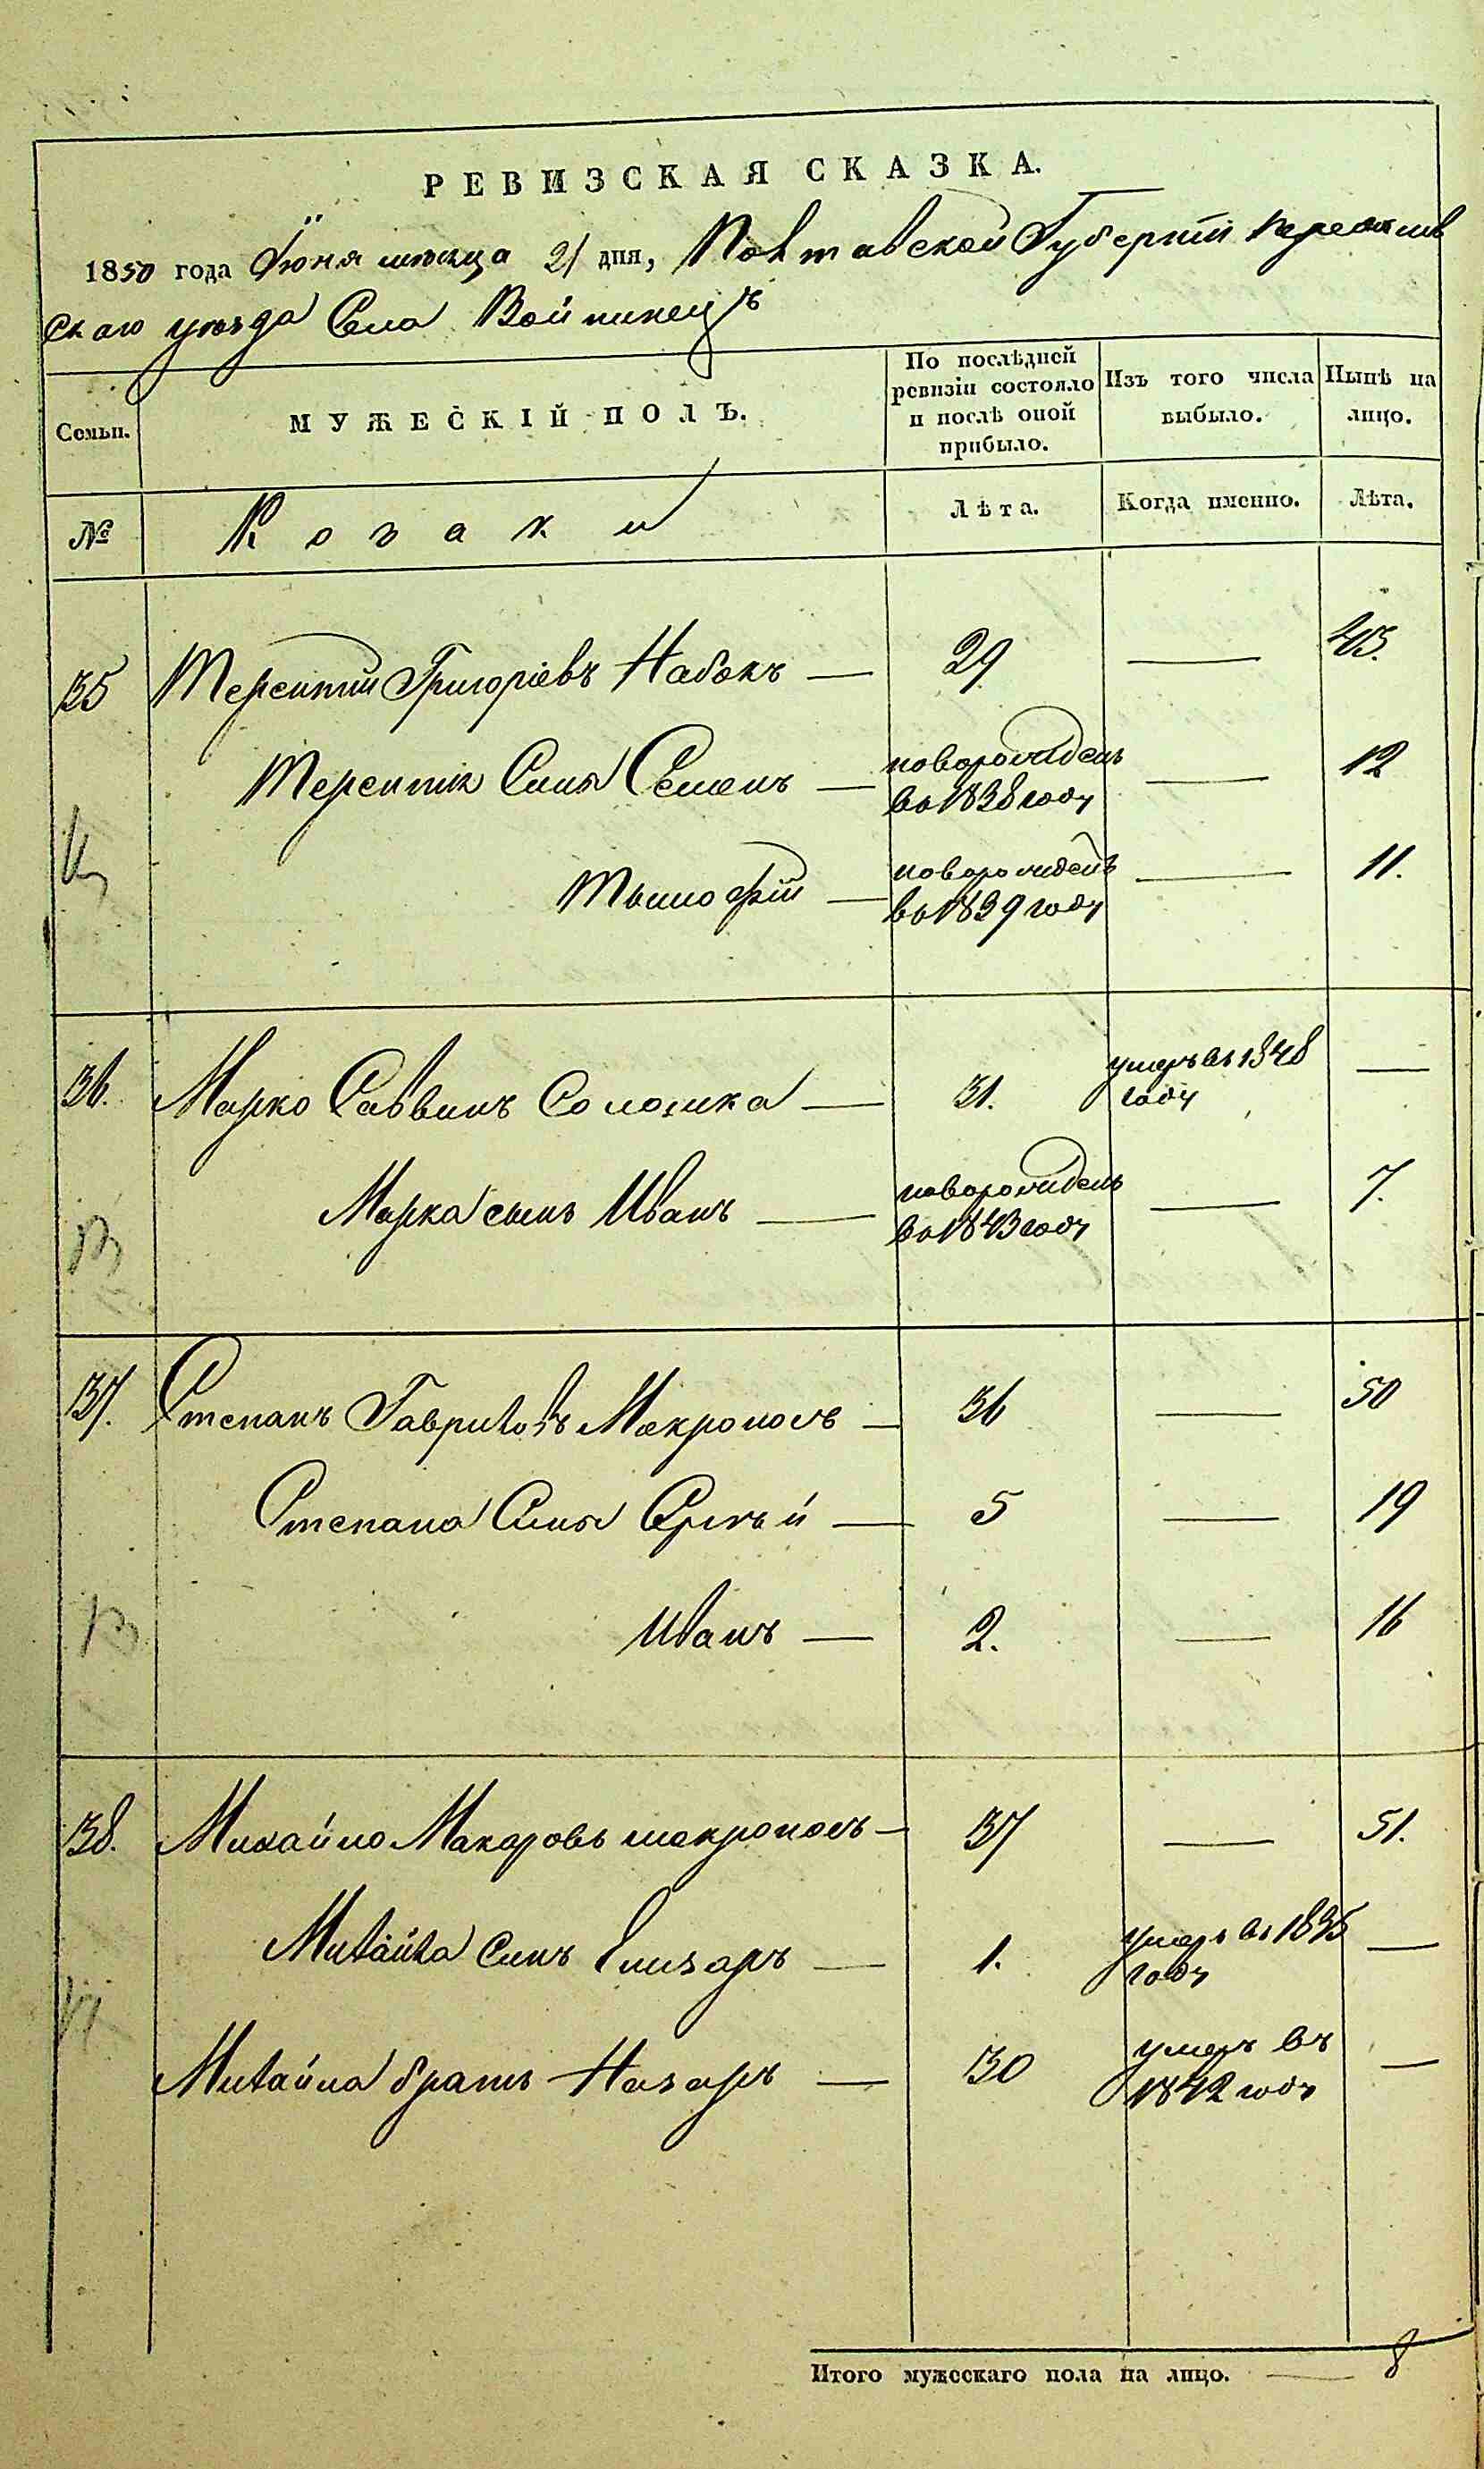 РЕВИЗСКАЯ СКАЗКА.
1850 года Іюня мѣсяца 21 дня, Полтавской Губерніи Переяслав
скаго уѣзда Села Войтинецъ
Семьи.
МУЖЕСКІЙ ПОЛЪ.
По послѣдней ревизіи состояло и послѣ оной прибыло.
Изъ того числа выбыло.
Нынѣ на лицо.
№
Козаки
Лѣта.
Когда именно.
Лѣта.
35 Терентий Григоріевъ Набокъ — 29 — 43.
Терентія Сынъ Семенъ — новорожденъ во 1838 году — 12
Тымофій — новорожденъ во 1839 году — 11.
36. Марко Саввинъ Соломка — 31. умеръ въ 1848 году —
Марка сынъ Иванъ — новорожденъ во 1843 году — 7.
37. Степанъ Гавриловъ Мокрополъ — 36 — 50
Степана Сынъ Сергѣй — 5 — 19
Иванъ — 2. — 16
38. Михайло Макаровъ мокрополъ — 37 — 51.
Михайла Синъ Елизаръ — 1. умеръ въ 1835 году —
Михайла братъ Назаръ — 30 умеръ въ 1842 году —
Итого мужескаго пола на лицо. — 8